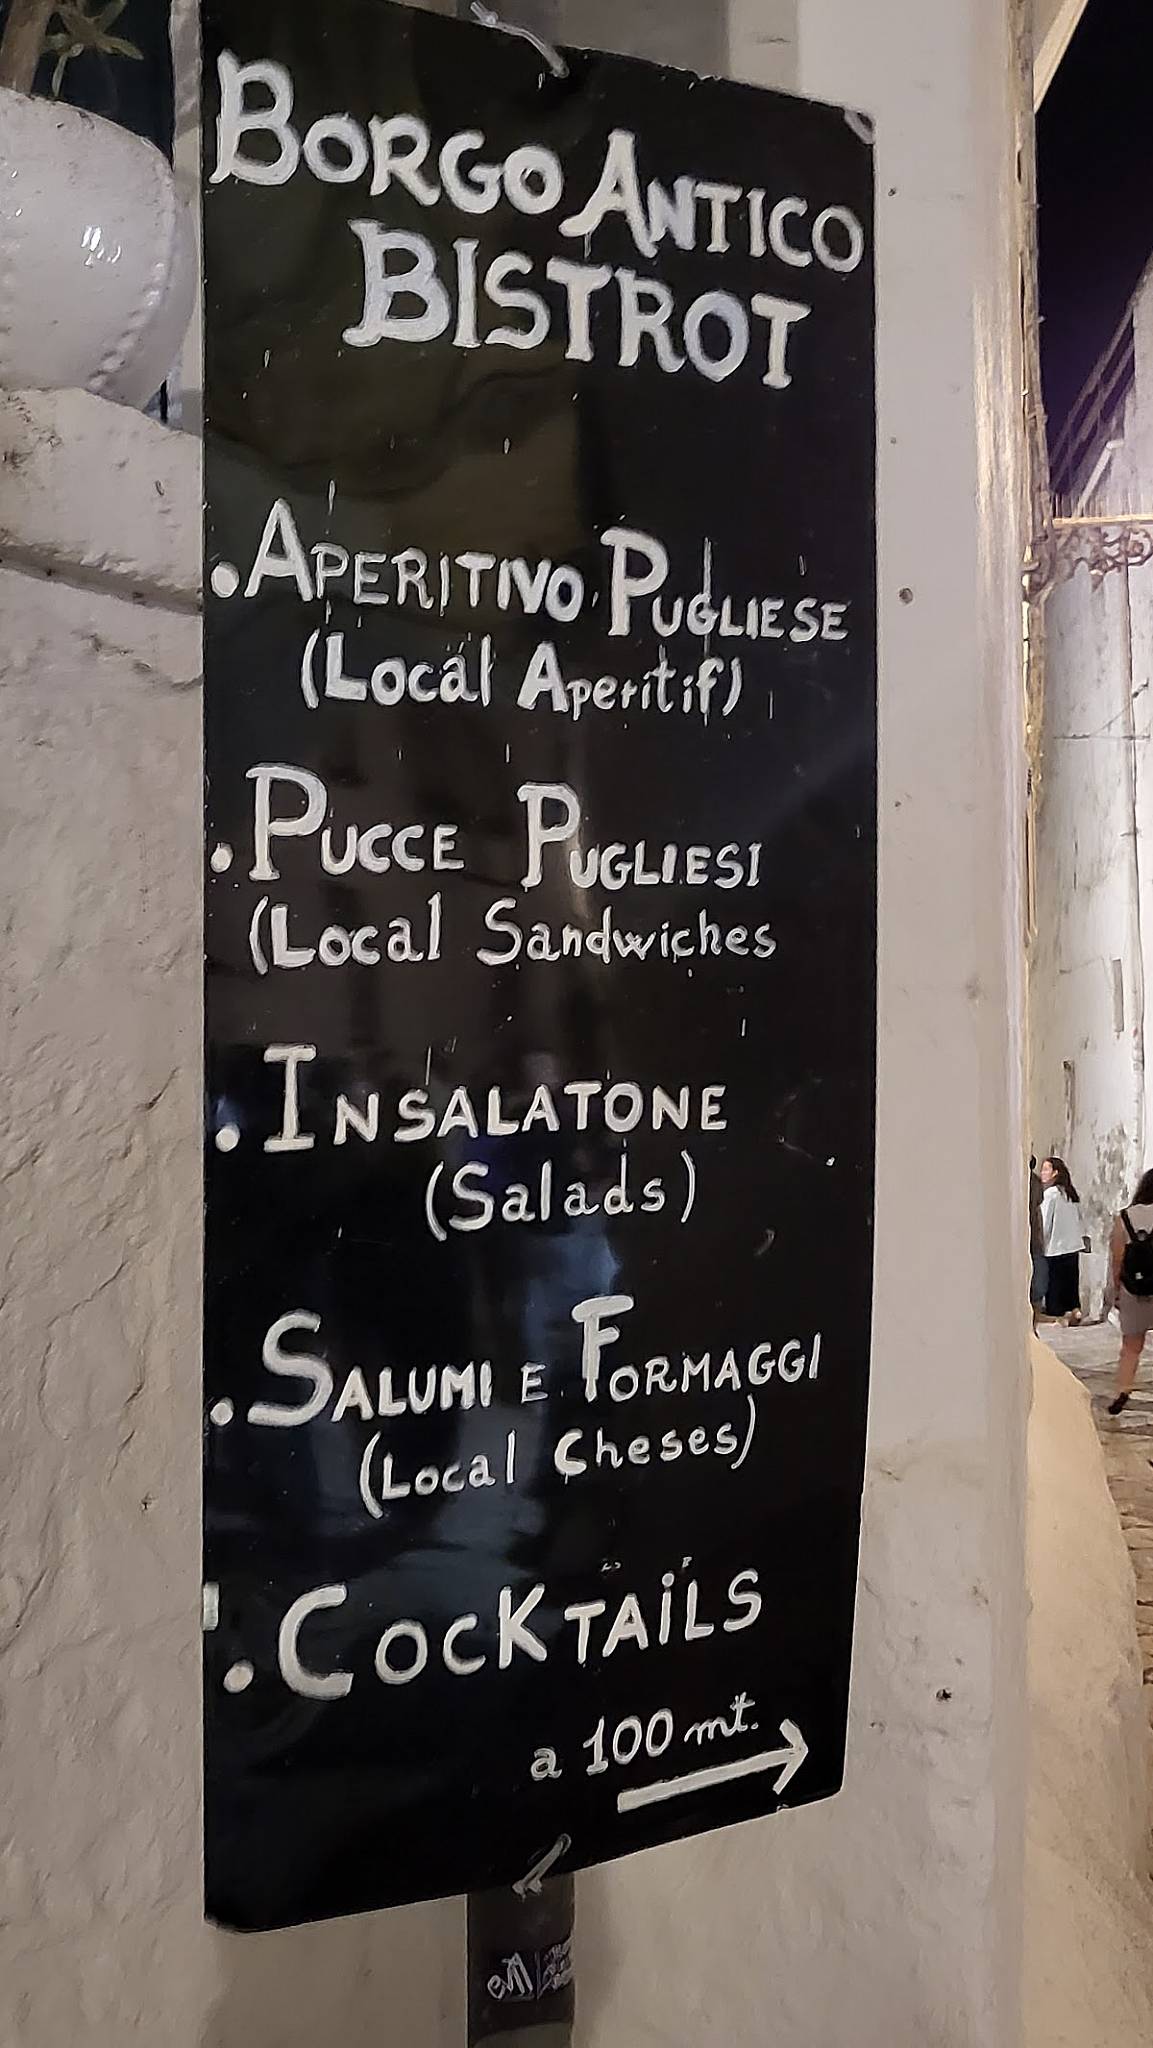 BORGO ANTICO
BISTROT
• APERITIVO PUGLIESE
(Local Aperitif)
• PUCCE PUGLIESI
(Local Sandwiches
• INSALATONE
(Salads)
• SALUMI E FORMAGGI
(Local Cheses)
• COCKTAiLS
a 100 mt.